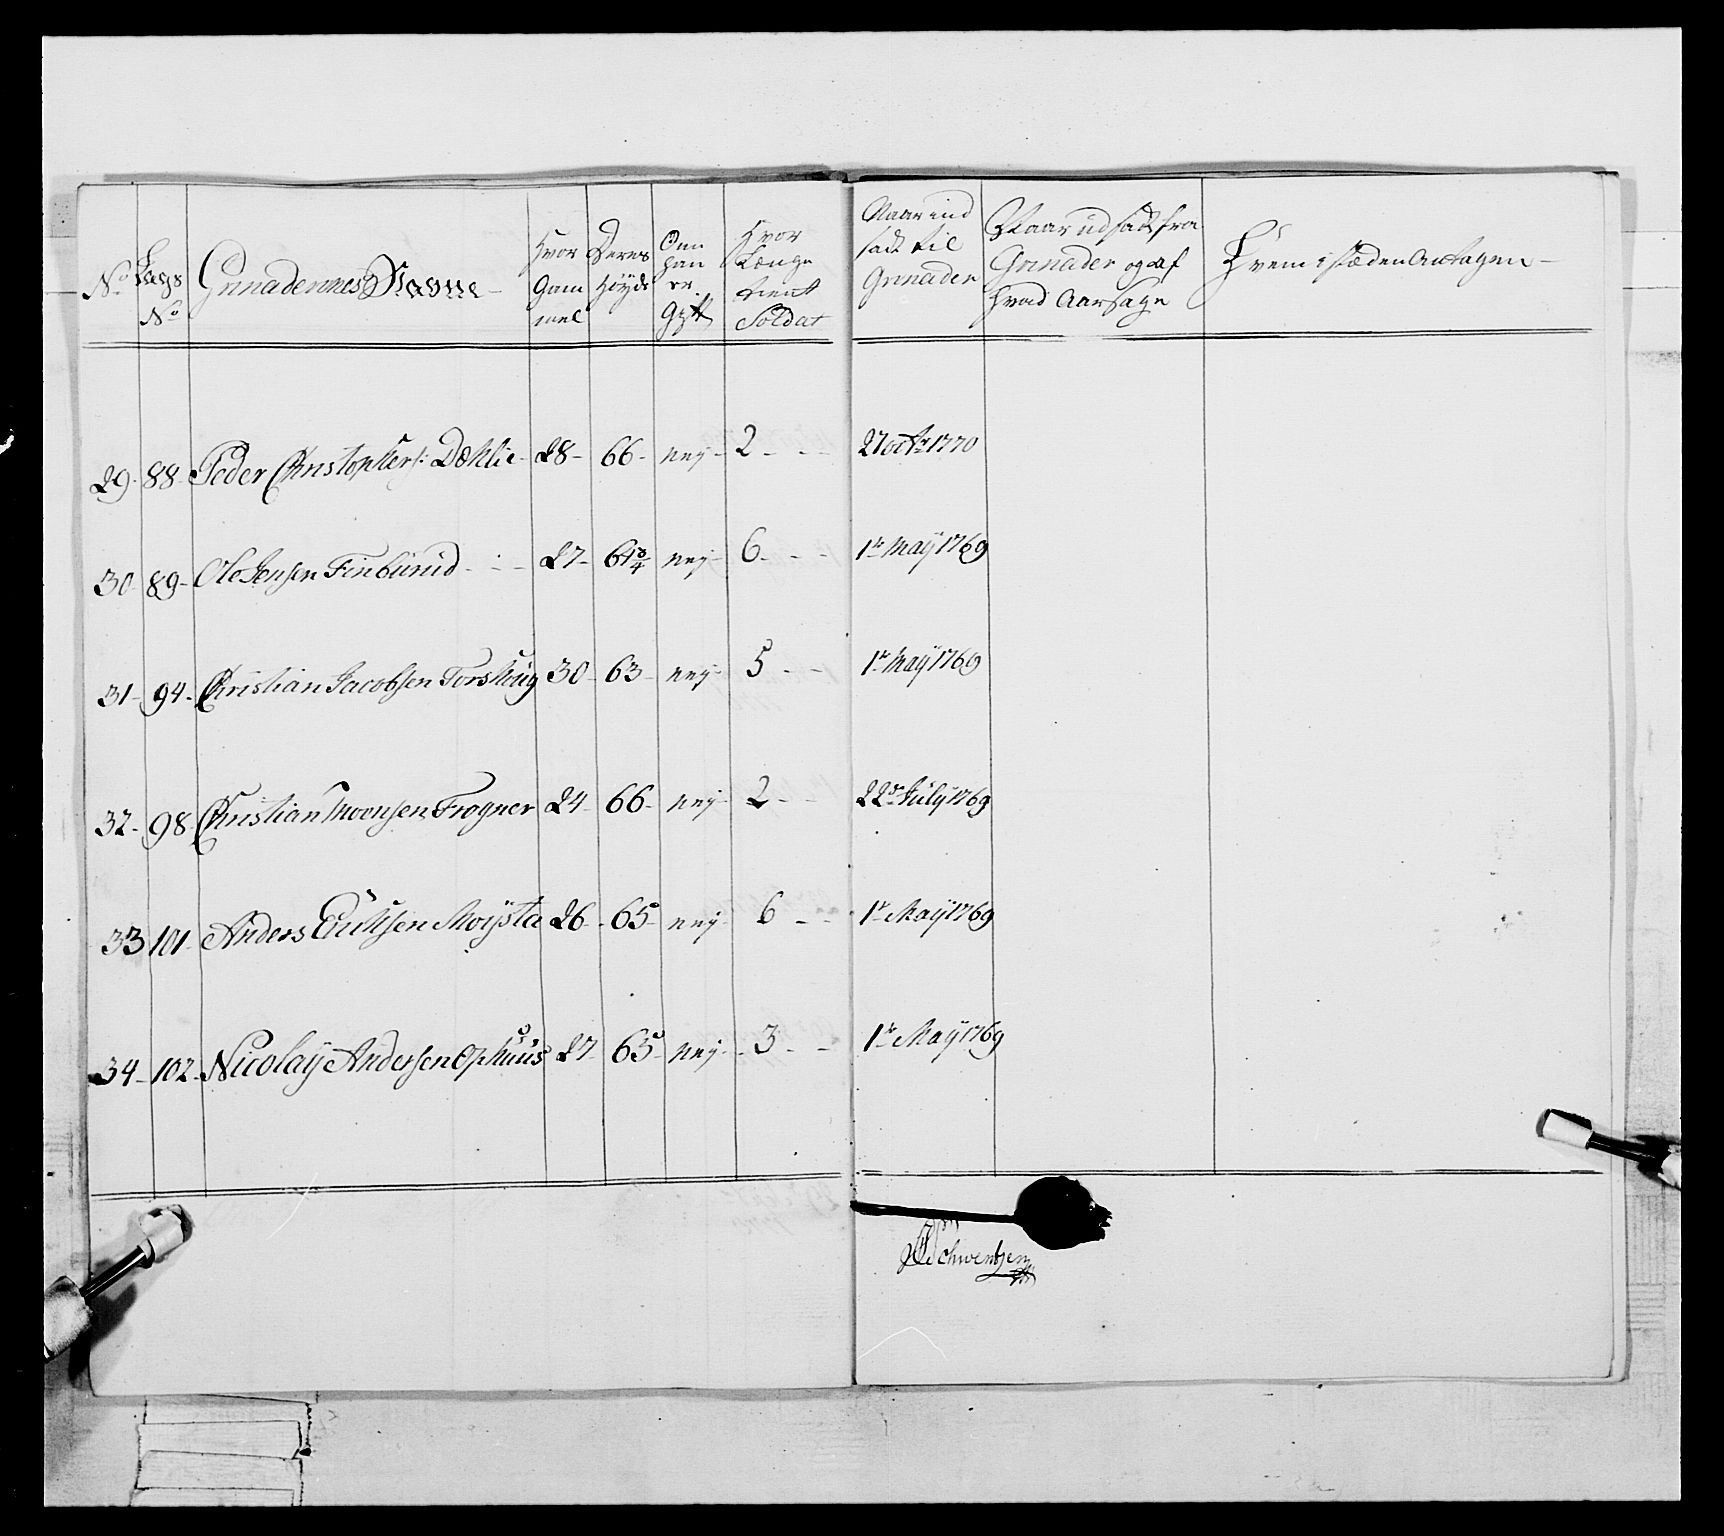 No
Lægs No
Grenaderernes Nafne
Hvor Gammel
Deres Høyde
Om han er Gift
Hvor Længe tient Soldat
Naar indsadt til Grenader
Naar udsadt fra Grenader og af hvad Aarsage
Hvem i stæden Antagen
29. 88. Peder Christophers: Dæhlie 28 66 nej 2 27 octbr 1770
30 89 Ole Jensen Finburud 27 61 3/4 nej 6 1te Maÿ 1769
31 94 Christian Jacobsen Torskoug 30 63 nej 5 1te Maÿ 1769
32 98 Christian Moensen Frogner 24 66 nej 2 22de Julÿ 1769
33 101 Anders Erichsen Moÿsta 26 65 nej 6 1te Maÿ 1769
34 102 Nicolaÿ Andersen Ophuus 27 65 nej 3 1te Maÿ 1769
Schwentzen